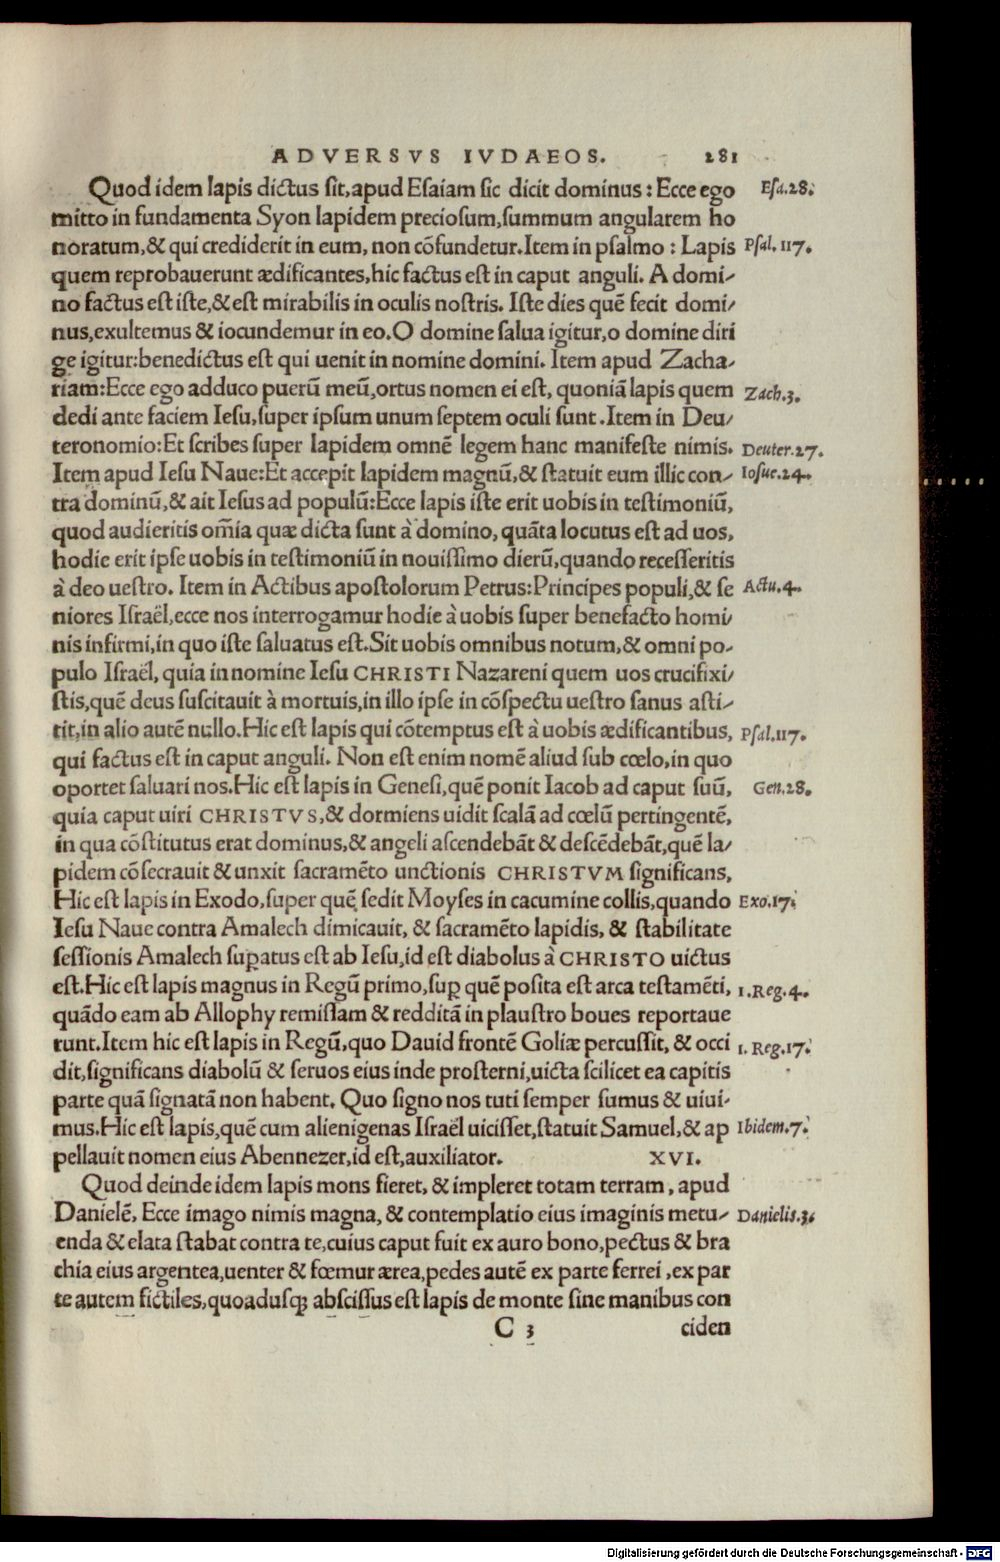 ADVERSVS IVDAEOS. 281
Quod idem lapis dictus sit, apud Esaiam sic dicit dominus: Ecce ego Esa.28.
mitto in fundamenta Syon lapidem preciosum, summum angularem ho
noratum, & qui crediderit in eum, non cõfundetur. Item in psalmo: Lapis Psal.117.
quem reprobauerunt ædificantes, hic factus est in caput anguli. A domi-
no factus est iste, & est mirabilis in oculis nostris. Iste dies quẽ fecit domi-
nus, exultemus & iocundemur in eo. O domine salua igitur, o domine diri
ge igitur: benedictus est qui uenit in nomine domini. Item apud Zacha-
riam: Ecce ego adduco puerũ meũ, ortus nomen ei est, quoniã lapis quem Zach.3.
dedi ante faciem Iesu, super ipsum unum septem oculi sunt. Item in Deu-
teronomio: Et scribes super lapidem omnẽ legem hanc manifeste nimis. Deuter.27.
Item apud Iesu Naue: Et accepit lapidem magnũ, & statuit eum illic con- Iosue.24.
tra dominũ, & ait Iesus ad populũ: Ecce lapis iste erit uobis in testimoniũ,
quod audieritis om̃ia quæ dicta sunt à domino, quãta locutus est ad uos,
hodie erit ipse uobis in testimoniũ in nouissimo dierũ, quando recesseritis
à deo uestro. Item in Actibus apostolorum Petrus: Principes populi, & se Actu.4.
niores Israël, ecce nos interrogamur hodie à uobis super benefacto homi-
nis infirmi, in quo iste saluatus est. Sit uobis omnibus notum, & omni po-
pulo Israël, quia in nomine Iesu CHRISTI Nazareni quem uos crucifixi-
stis, quẽ deus suscitauit à mortuis, in illo ipse in cõspectu uestro sanus asti-
tit, in alio autẽ nullo. Hic est lapis qui cõtemptus est à uobis ædificantibus, Psal.117.
qui factus est in caput anguli. Non est enim nomẽ aliud sub cœlo, in quo
oportet saluari nos. Hic est lapis in Genesi, quẽ ponit Iacob ad caput suũ, Gen.28.
quia caput uiri CHRISTVS, & dormiens uidit scalã ad cœlũ pertingentẽ,
in qua cõstitutus erat dominus, & angeli ascendebãt & descẽdebãt, quẽ la-
pidem cõsecrauit & unxit sacramẽto unctionis CHRISTVM significans,
Hic est lapis in Exodo, super quẽ sedit Moyses in cacumine collis, quando Exo.17.
Iesu Naue contra Amalech dimicauit, & sacramẽto lapidis, & stabilitate
sessionis Amalech suꝑatus est ab Iesu, id est diabolus à CHRISTO uictus
est. Hic est lapis magnus in Regũ primo, suꝑ quẽ posita est arca testamẽti, 1.Reg.4.
quãdo eam ab Allophy remissam & redditã in plaustro boues reportaue
runt. Item hic est lapis in Regũ, quo Dauid frontẽ Goliæ percussit, & occi 1. Reg.17.
dit, significans diabolũ & seruos eius inde prosterni, uicta scilicet ea capitis
parte quã signatã non habent. Quo signo nos tuti semper sumus & uiui-
mus. Hic est lapis, quẽ cum alienigenas Israël uicisset, statuit Samuel, & ap Ibidem.7.
pellauit nomen eius Abennezer, id est, auxiliator. XVI.
Quod deinde idem lapis mons fieret, & impleret totam terram, apud
Danielẽ, Ecce imago nimis magna, & contemplatio eius imaginis metu- Danielis.3.
enda & elata stabat contra te, cuius caput fuit ex auro bono, pectus & bra
chia eius argentea, uenter & fœmur ærea, pedes autẽ ex parte ferrei, ex par
te autem fictiles, quoadusqꝫ abscissus est lapis de monte sine manibus con
C 3 ciden
Digitalisierung gefördert durch die Deutsche Forschungsgemeinschaft - DFG